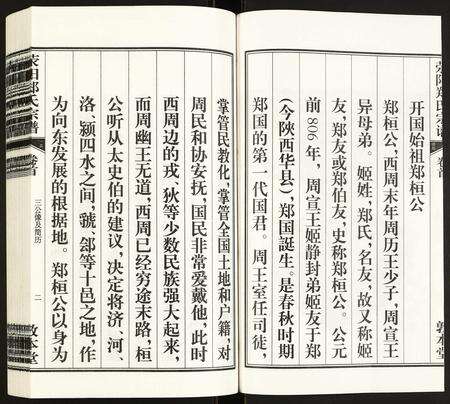 开国始祖郑桓公
郑桓公，西周末年周历王少子，周宣王
异母弟。姬姓，郑氏，名友，故又称姬
友，郑友或郑伯友，史称郑桓公。公元
前 806 年，周宣王姬静封弟姬友于郑
（今陕西华县），郑国誕生。是春秋时期
郑国的第一代国君。周王室任司徒，
敦本堂
掌管民教化，掌管全国土地和户籍，对
周民和协安抚，国民非常爱戴他，此时
西周边的戎、狄等少数民族强大起来，
而周幽王无道，西周已经穷途末路，桓
公听从太史伯的建议，决定将济、河、
洛、颍四水之间，虢、郐等十邑之地，作
为向东发展的根据地。郑桓公以身为
卷首
三公像及简历
二
敦本堂